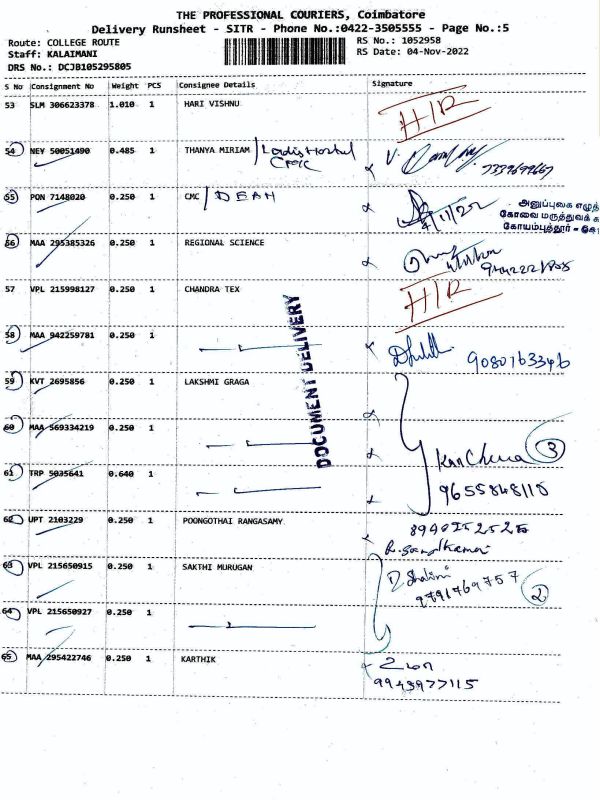 THE PROFESSIONAL COURIERS, Coimbatore
Delivery Runsheet - SITR - Phone No.:0422-3505555 - Page No.:5
Route: COLLEGE ROUTE RS No.: 1052958
Staff: KALAIMANI RS Date: 04-Nov-2022
DRS No.: DCJB105295805
S No Consignment No Weight PCS Consignee Details Signature
53 SLM 306623378 1.010 1 HARI VISHNU H/R
54 NEY 50051490 0.485 1 THANYA MIRIAM / Ladis Hostul
CMC
7339699667
55 PON 7148020 0.250 1 CMC / DEAN
4/11/22
அனுப்புகை எழுத்
கோவை மருத்துவக் க
கோயம்புத்தூர் -
56 MAA 295385326 0.250 1 REGIONAL SCIENCE
57 VPL 215998127 0.250 1 CHANDRA TEX H/R
58 MAA 942259781 0.250 1
9080163346
DOCUMENT DELIVERY
59 KVT 2695856 0.250 1 LAKSHMI GRAGA
60 MAA 569334219 0.250 1
3
61 TRP 5035641 0.640 1
9655848118
62 UPT 2103229 0.250 1 POONGOTHAI RANGASAMY
63 VPL 215650915 0.250 1 SAKTHI MURUGAN
D. Shalini
9791769757 2
64 VPL 215650927 0.250 1
65 MAA 295422746 0.250 1 KARTHIK உமா
9943977115